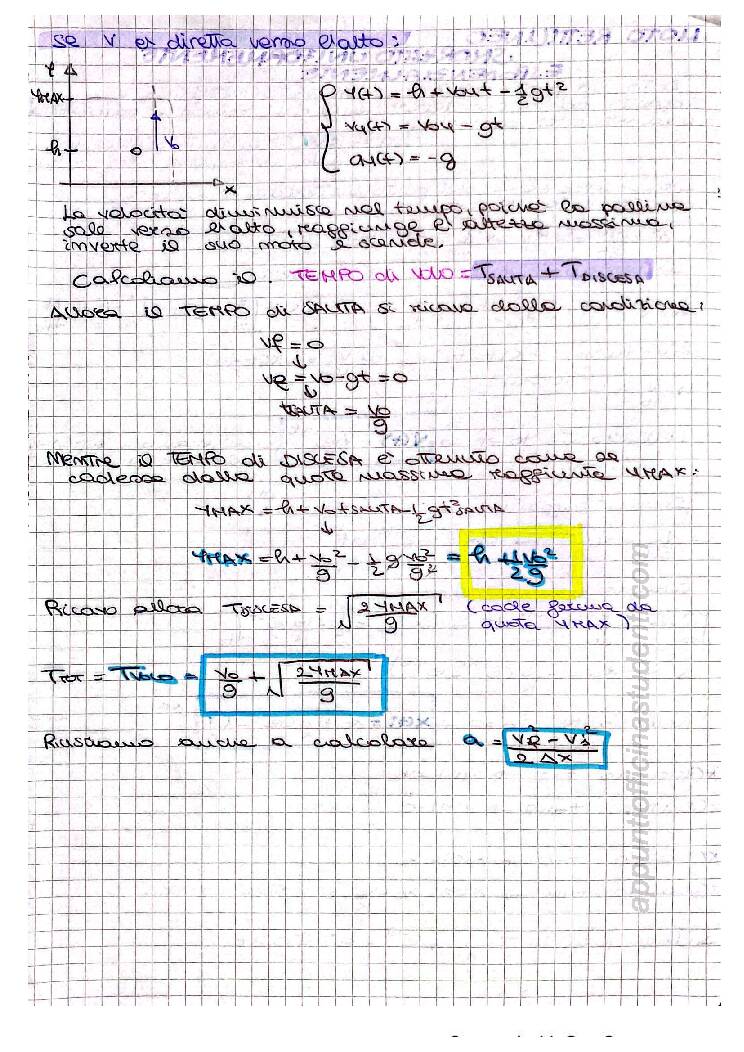 se v è diretta verso l'alto:
y
YMAX
h
v₀
x
y(t) = h + v₀y t - 1/2 gt²
vy(t) = v₀y - gt
ay(t) = -g
La velocità diminuisce nel tempo, poiché la pallina
sale verso l'alto, raggiunge l'altezza massima,
inverte il suo moto e scende.
Calcoliamo il TEMPO di VOLO = TSALITA + TDISCESA
Allora il TEMPO di SALITA si ricava dalla condizione:
vf = 0
↓
vf = v₀ - gt = 0
↓
tSALITA = v₀/g
Mentre il TEMPO di DISCESA è ottenuto come se
cadesse dalla quota massima raggiunta YMAX:
YMAX = h + v₀ tSALITA - 1/2 gt²SALITA
↓
YMAX = h + v₀²/g - 1/2 g v₀²/g² = h + 1/2 v₀²/g
Ricavo allora TDISCESA = √(2YMAX/g) (cade ferma da
quota YMAX)
TTOT = TVOLO = v₀/g + √(2YMAX/g)
Riusciamo anche a calcolare a = (vf² - vi²)/(2 Δx)
appuntiofficinastudent.com